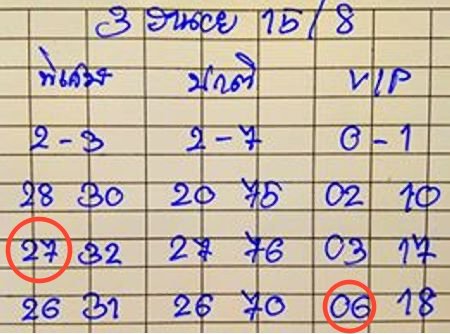 3 ฮานอย 15/8
พิเศษ ปกติ VIP
2-3 2-7 0-1
28 30 20 75 02 10
27 32 27 76 03 17
26 31 26 70 06 18